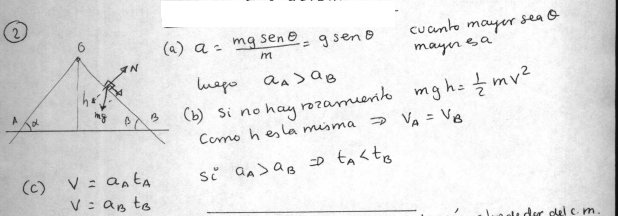 2
(a) a = mg sen θ / m = g sen θ cuanto mayor sea θ
mayor es a
luego aA > aB
(b) si no hay rozamiento mgh = 1/2 mv²
Como h es la misma ⇒ VA = VB
si aA > aB ⇒ tA < tB
(c) V = aA tA
V = aB tB
O
N
h
mg
A α β B
del c.m.